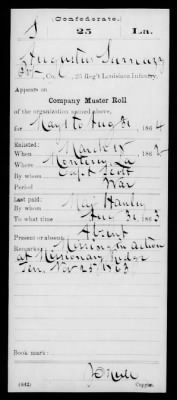 (Confederate.)
S 25 La.
Augustus
Pvt., Co. , 25 Reg't Louisiana Infantry.
Appears on
Company Muster Roll
of the organization named above,
for May 1 to Aug 31, 1864
Enlisted:
When March 15, 1862
Where Monroe, La
By whom Capt Scott
Period War
Last paid:
By whom Maj Hanly
To what time Aug 31, 1863
Present or absent Absent
Remarks: Missing in action
at Missionary Ridge
Ten. Nov 25 1863
Book mark:
(642) Copyist.